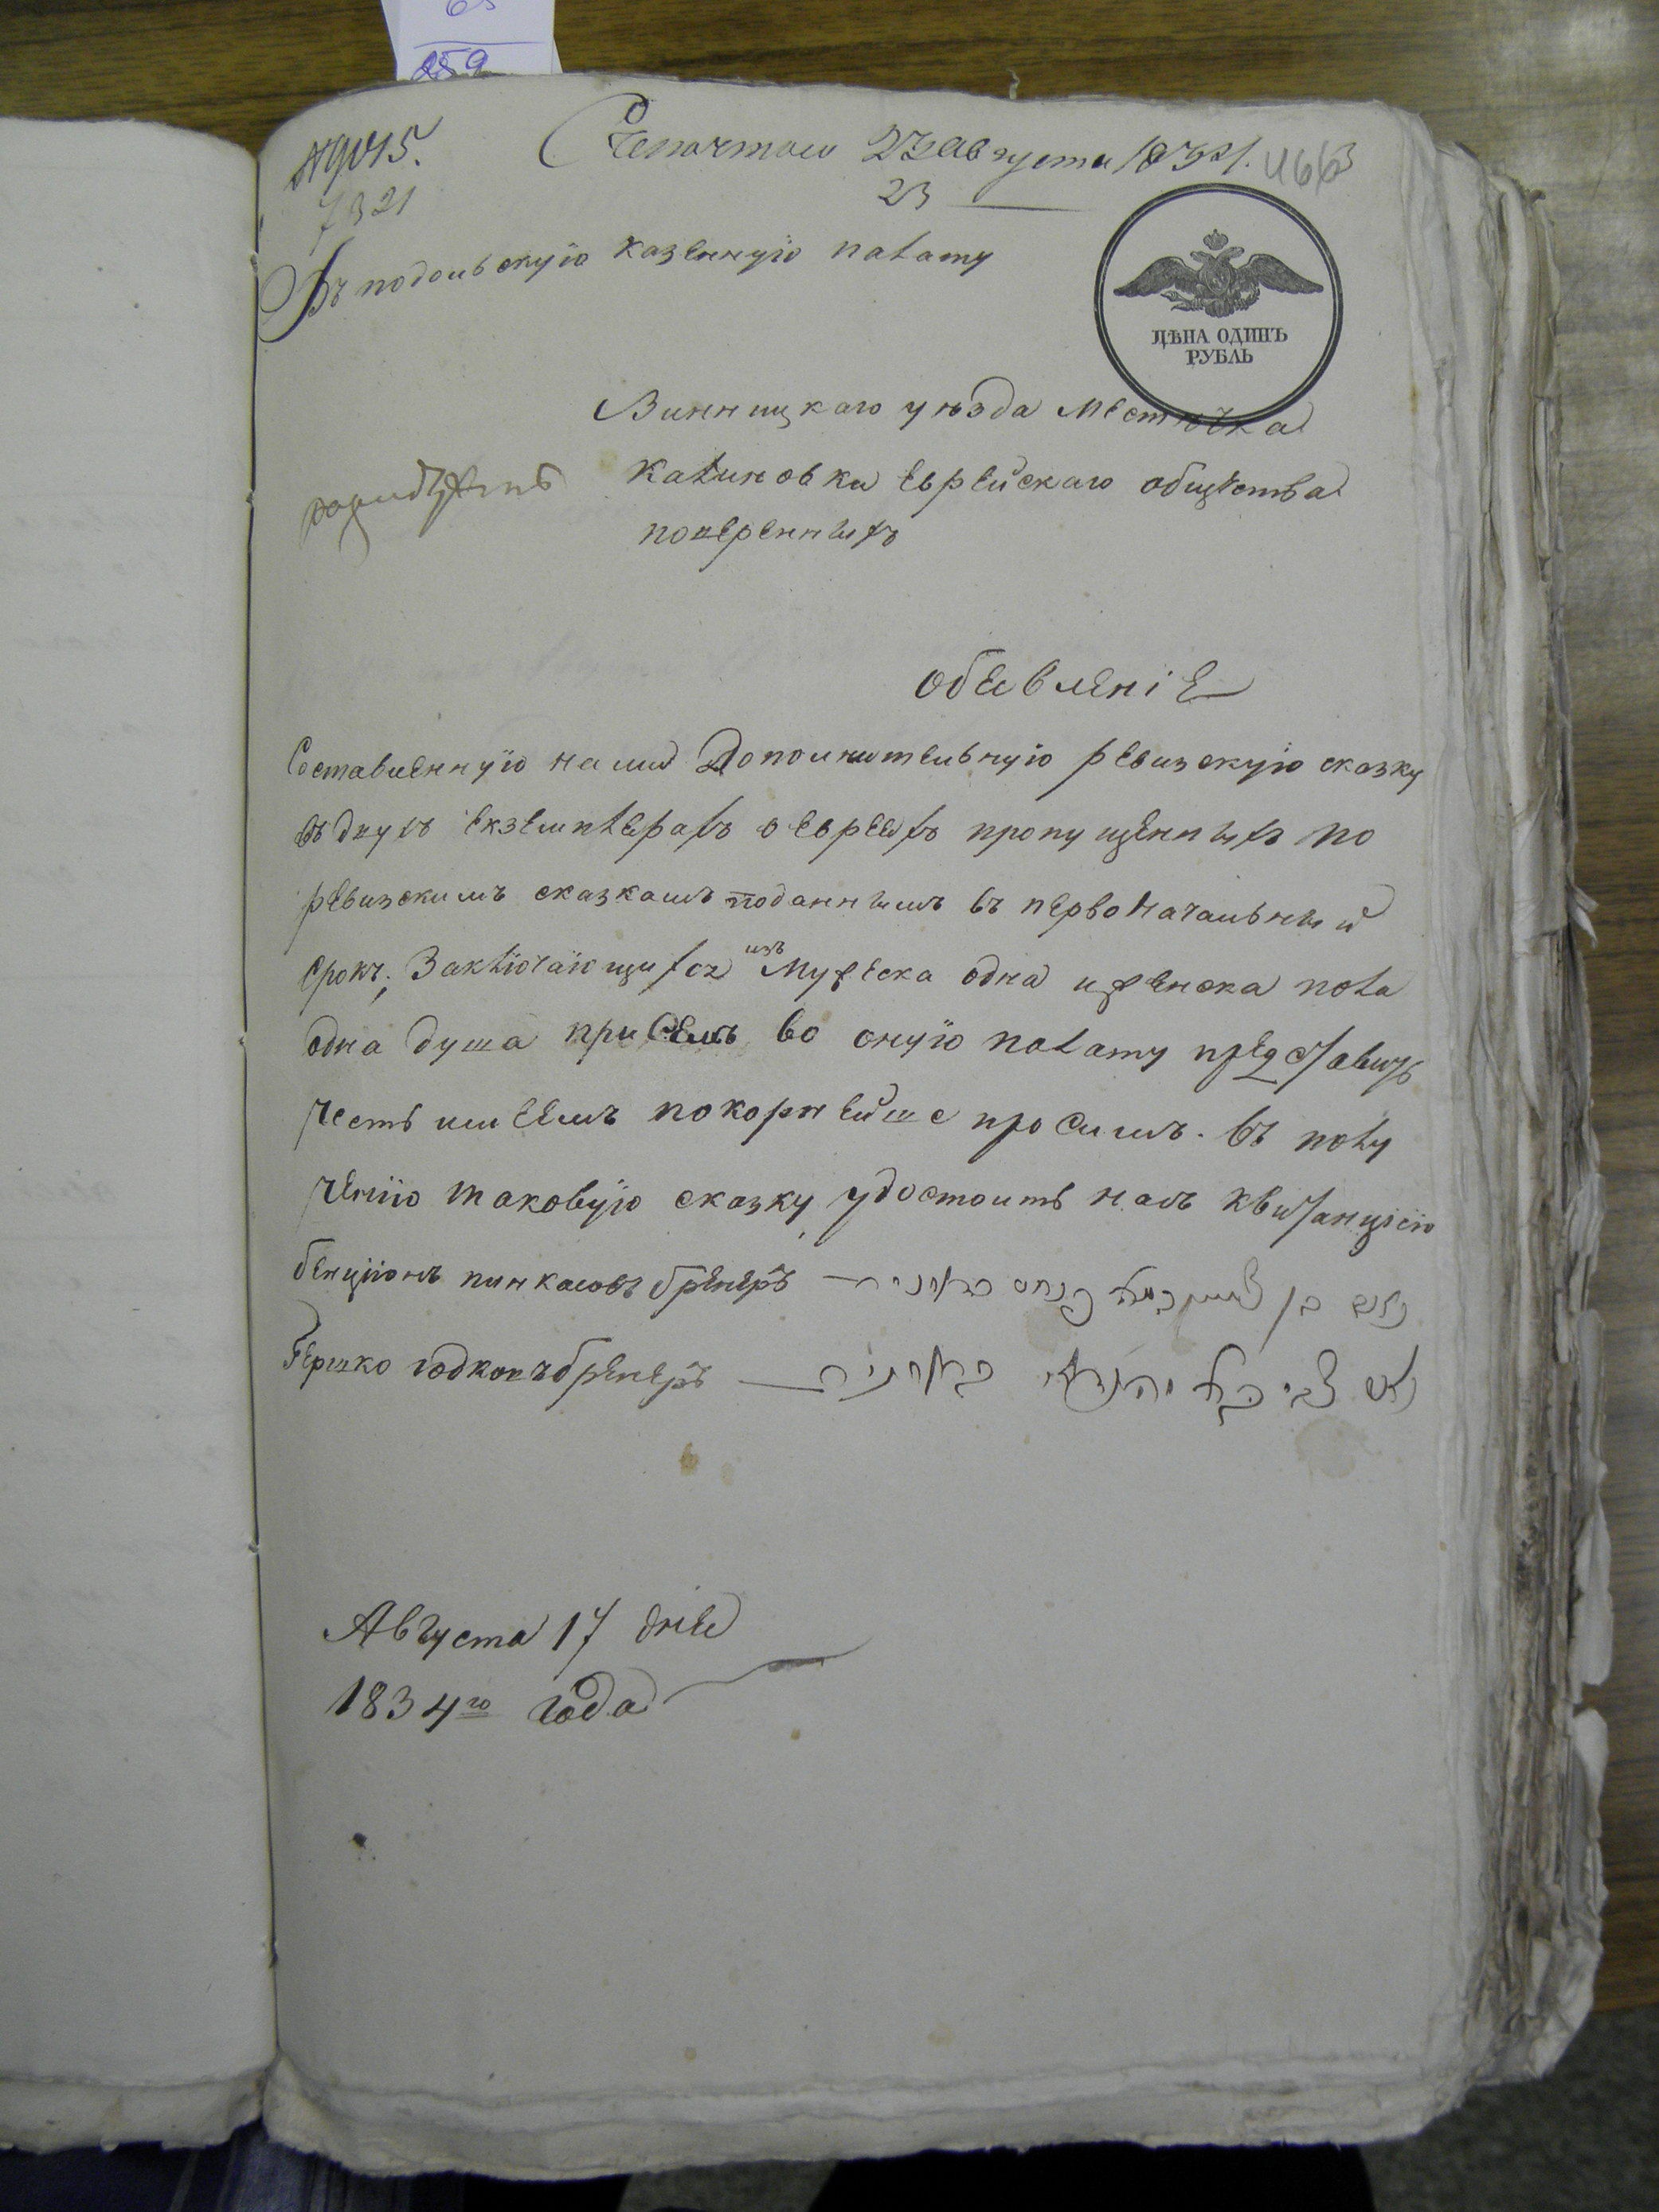 65
259
№ 9015.
Съ почтою 23 августа 1834. 463
7321
23
Въ подольскую казенную палату
ЦѢНА ОДИНЪ
РУБЛЬ
Винницкаго уѣзда Местѣчка
Калиновки еврейскаго общества
поверенныхъ
обевленіе
Составленную нами Дополнительную ревизскую сказку
въ двухъ екземплерахъ о евреехъ пропущенныхъ по
ревизскимъ сказкамъ поданнымъ въ первоначальный
срокъ, Заключающихся изъ Мужеска одна иженска пола
одна душа при семъ во оную палату представить
честь имеемъ покорнейше просимъ. въ полу
ченію таковую сказку удостоить насъ квитанціею
бенціонъ пинкасовъ бренеръ — נאום בן ציון במוה פנחס
Гершко юдковъ бренеръ — נאום צבי במוה
Августа 17 днея
1834го года